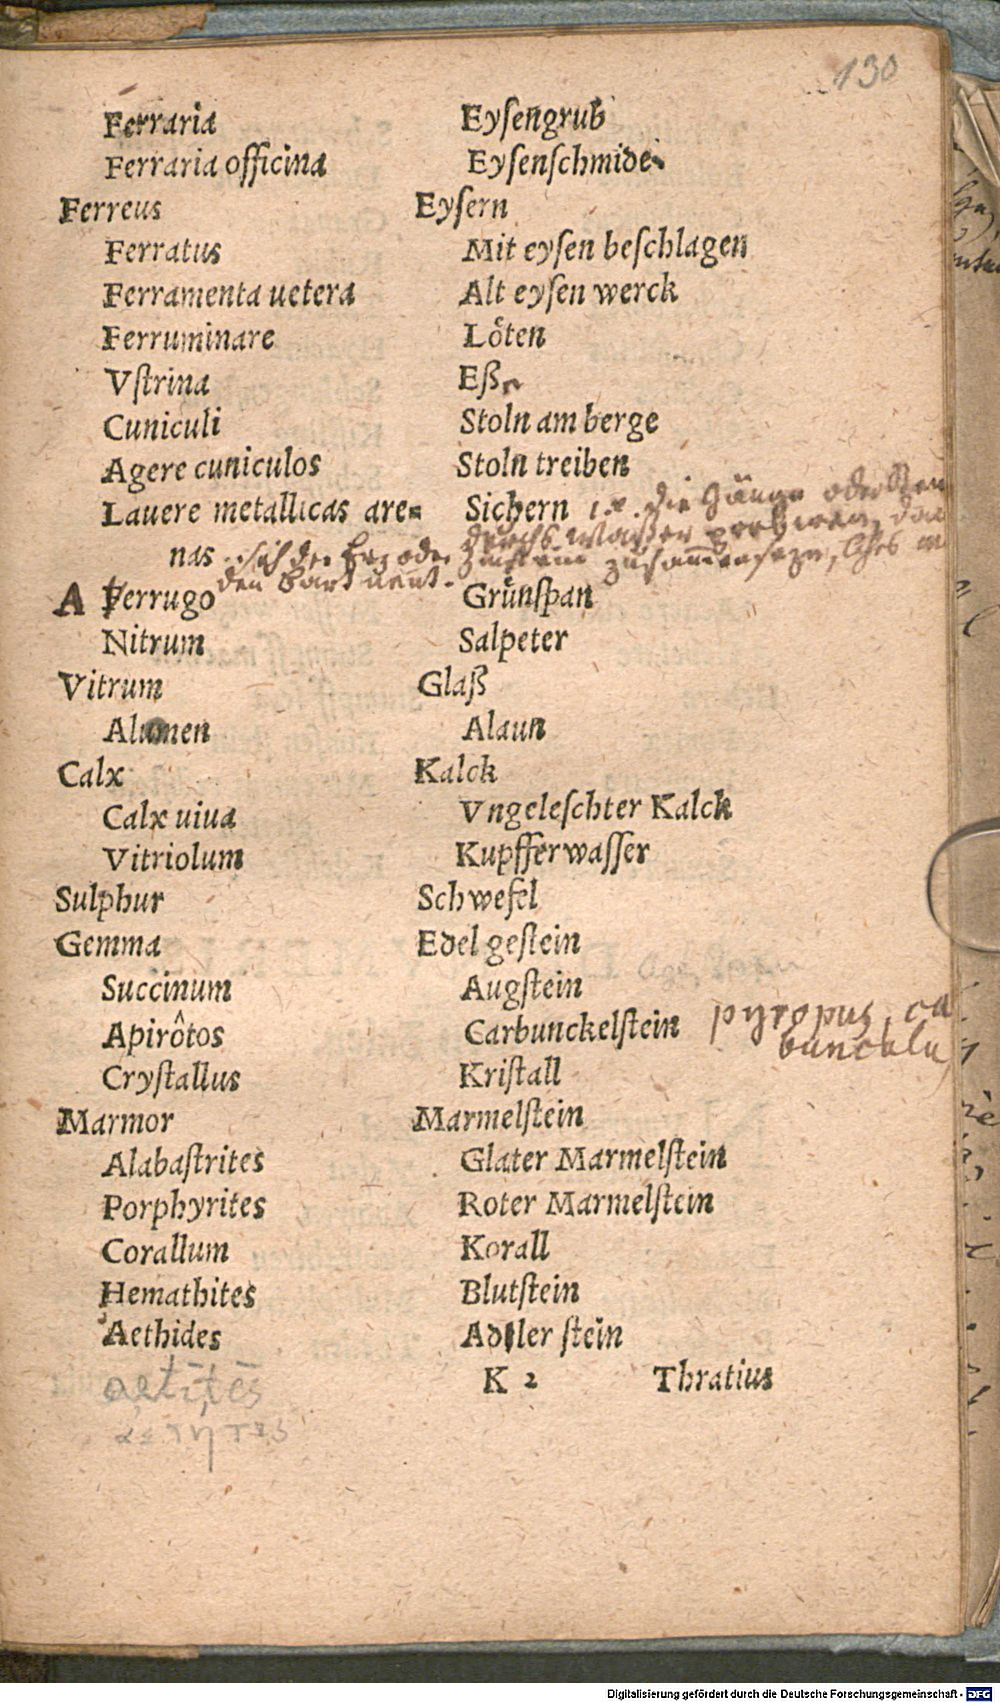 130
Ferraria Eyſengrub
Ferraria officina Eyſenſchmide
Ferreus Eyſern
Ferratus Mit eyſen beſchlagen
Ferramenta uetera Alt eyſen werck
Ferruminare Löten
Vſtrina Eßе
Cuniculi Stoln am berge
Agere cuniculos Stoln treiben
Lauere metallicas are= Sichern i.e. die Gänge oder
nas durchs Waßer
den bart nent.
A Ferrugo Grünſpan
Nitrum Salpeter
Vitrum Glaß
Alumen Alaun
Calx Kalck
Calx uiua Vngeleſchter Kalck
Vitriolum Kupfferwaſſer
Sulphur Schwefel
Gemma Edel geſtein
Succinum Augſtein
Apirôtos Carbunckelſtein pyropus, ca
bunculu
Cryſtallus Kriſtall
Marmor Marmelſtein
Alabaſtrites Glater Marmelſtein
Porphyrites Roter Marmelſtein
Corallum Korall
Hemathites Blutſtein
Aethides Adler ſtein
K 2 Thratius
Digitalisierung gefördert durch die Deutsche Forschungsgemeinschaft - DFG